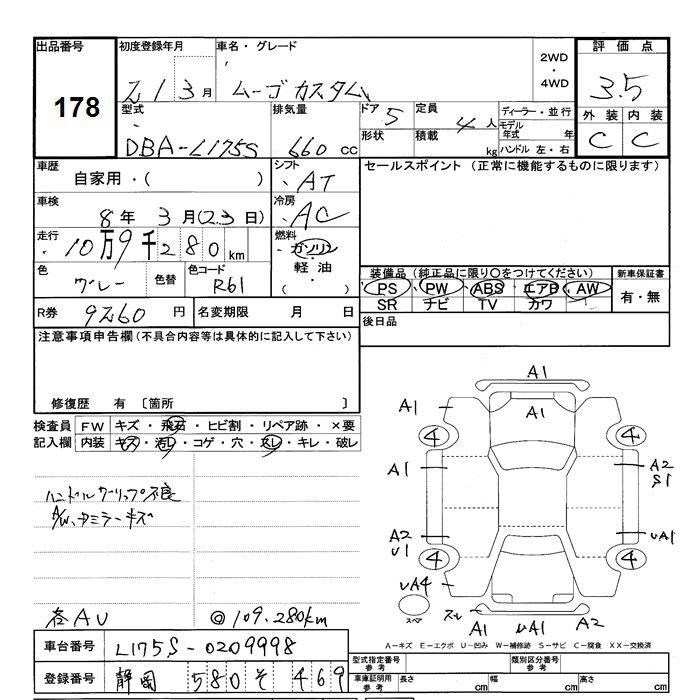 出品番号
178
初度登録年月
21 3月
車名・グレード
ムーヴカスタム
2WD
・
4WD
評価点
3.5
外装 内装
C C
型式
DBA-L175S
排気量
660 cc
ドア 5
形状
定員 4人
積載 kg
ディーラー・並行
モデル年式 年
ハンドル 左・右
車歴
自家用・( )
シフト
AT
セールスポイント (正常に機能するものに限ります)
車検
8年 3月(23日)
冷房
AC
走行
10万9千280km
燃料
ガソリン
・
軽油
( )
色
グレー
色替
色コード
R61
装備品 (純正品に限り○をつけてください)
PS PW ABS エアB AW
SR ナビ TV カワ
新車保証書
有・無
R券 9260円
名変期限 月 日
後日品
注意事項申告欄(不具合内容等は具体的に記入して下さい)
修復歴 有 〔箇所 〕
検査員記入欄
FW キズ・飛石・ヒビ割・リペア跡・×要
内装 キズ・汚レ・コゲ・穴・スレ・キレ・破レ
ハンドルグリップ不良
A/W、
ミラーキズ
各AU
◎109.280km
A1
A1
A1
4 4
A1
A2
S1
A2
U1
UA1
4 4
UA4
スペア
スレ
A1 UA1 A2
A-キズ E-エクボ U-凹み W-補修跡 S-サビ C-腐食 XX-交換済
車台番号 L175S-0209998
登録番号 静岡 580 そ 469
型式指定番号 参考
類別区分番号 参考
車庫証明用 参考
長さ cm 幅 cm 高さ cm